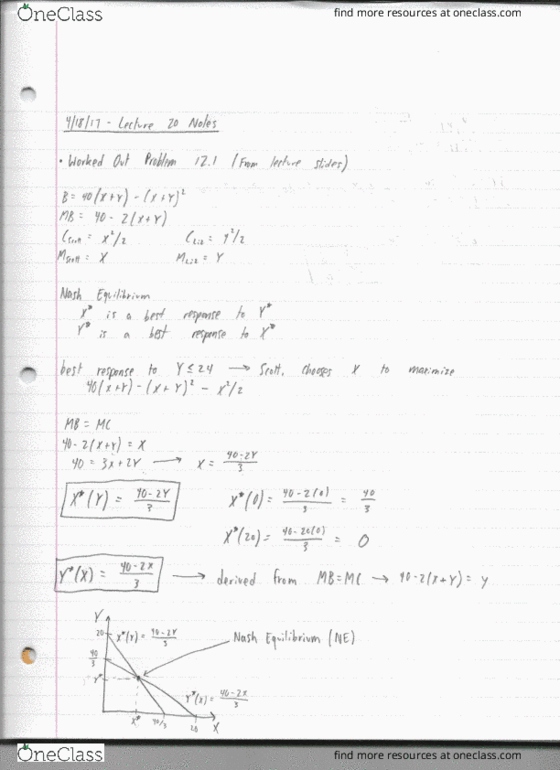 OneClass
find more resources at oneclass.com
4/18/17 - Lecture 20 Notes
• Worked Out Problem 12.1 (From lecture slides)
B = 40(x+Y) - (x+Y)²
MB = 40 - 2(x+Y)
C_Scott = x²/2 C_Liz = y²/2
M_Scott = X M_Liz = Y
Nash Equilibrium
X* is a best response to Y*
Y* is a best response to X*
best response to Y ≤ 24 → Scott, chooses X to maximize
40(x+Y) - (x+Y)² - x²/2
MB = MC
40 - 2(x+Y) = X
40 = 3x + 2Y → x = (40-2Y)/3
X*(Y) = (40-2Y)/3 X*(0) = (40-2(0))/3 = 40/3
X*(20) = (40-20(0))/3 = 0
Y*(X) = (40-2x)/3 → derived from MB=MC → 40-2(x+Y) = y
Y
20 X*(Y) = (40-2Y)/3
Nash Equilibrium (NE)
40/3
Y*
Y*(x) = (40-2x)/3
X* 40/3 20 X
OneClass
find more resources at oneclass.com